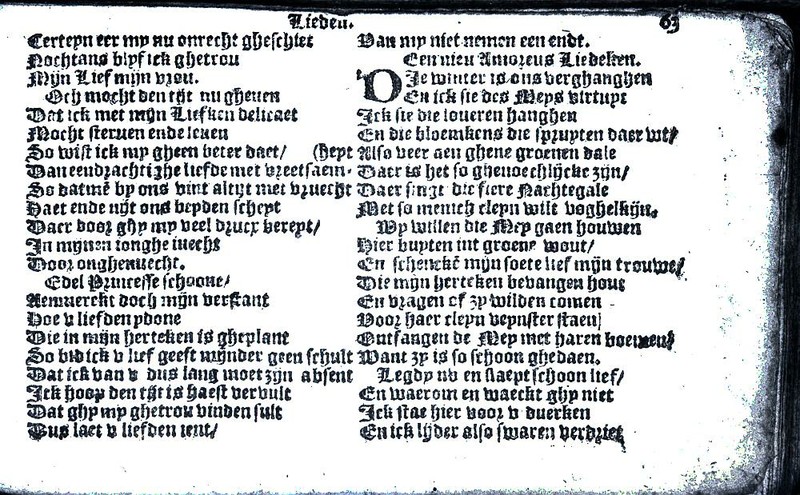 Lieden. 63
Certeyn eer my nu onrecht gheschiet
Nochtans blyf ick ghetrou
Mijn Lief mijn vrou.
Och mocht den tijt nu gheuen
Dat ick met mijn Liefken delicaet
Mocht steruen ende leuen
So wist ick my gheen beter daet/ (heyt
Dan eendrachtighe liefde met vreetsaem-
So datmē by ons vint altijt met vruecht
Haet ende nijt ons beyden scheyt
Daer door ghy my veel druck bereyt/
In mynen ionghe iuecht
Door onghenuecht.
Edel Princesse schoone/
Aenmerckt doch mijn verstant
Hoe v liefden ydone
Die in mijn herteken is gheplant
So bid ick v lief geeft mijnder geen schult
Dat ick van v dus lang moet zijn absent
Ick hoop den tijt is haest vervult
Dat ghy my ghetrou vinden sult
Dus laet v liefden ient/
Van my niet nemen een endt.
Een nieu Amoreus Liedeken.
DJe winter is ons verghanghen
En ick sie des Meys virtuyt
Ick sie die loueren hanghen
En die bloemkens die spruyten daer wt/
Also veer aen ghene groenen dale
Daer is het so ghenoechlijcke zijn/
Daer singt die fiere Nachtegale
Met so menich cleyn wilt voghelkijn.
Wy willen die Mey gaen houwen
Hier buyten int groene wout/
En schenckē mijn soete lief mijn trouwe/
Die mijn herteken bevangen hout
En vragen of zy wilden comen
Voor haer cleyn veynster staen
Ontfangen de Mey met haren boemen/
Want zy is so schoon ghedaen.
Legdy nv en slaept schoon lief/
En waerom en waeckt ghy niet
Ick stae hier voor v duerken
En ick lijder also swaren verdriet